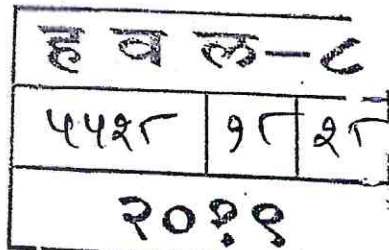 हवल-८
५५२८ १८ २८
२०१९